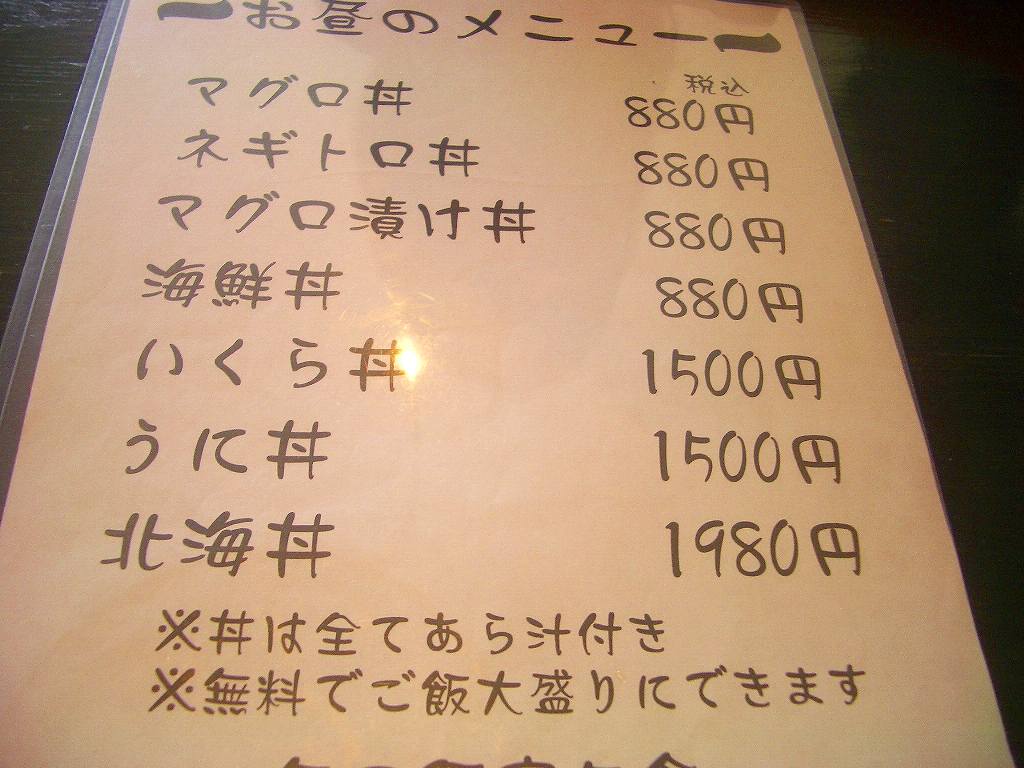 お昼のメニュー
税込
マグロ丼 880円
ネギトロ丼 880円
マグロ漬け丼 880円
海鮮丼 880円
いくら丼 1500円
うに丼 1500円
北海丼 1980円
※丼は全てあら汁付き
※無料でご飯大盛りにできます